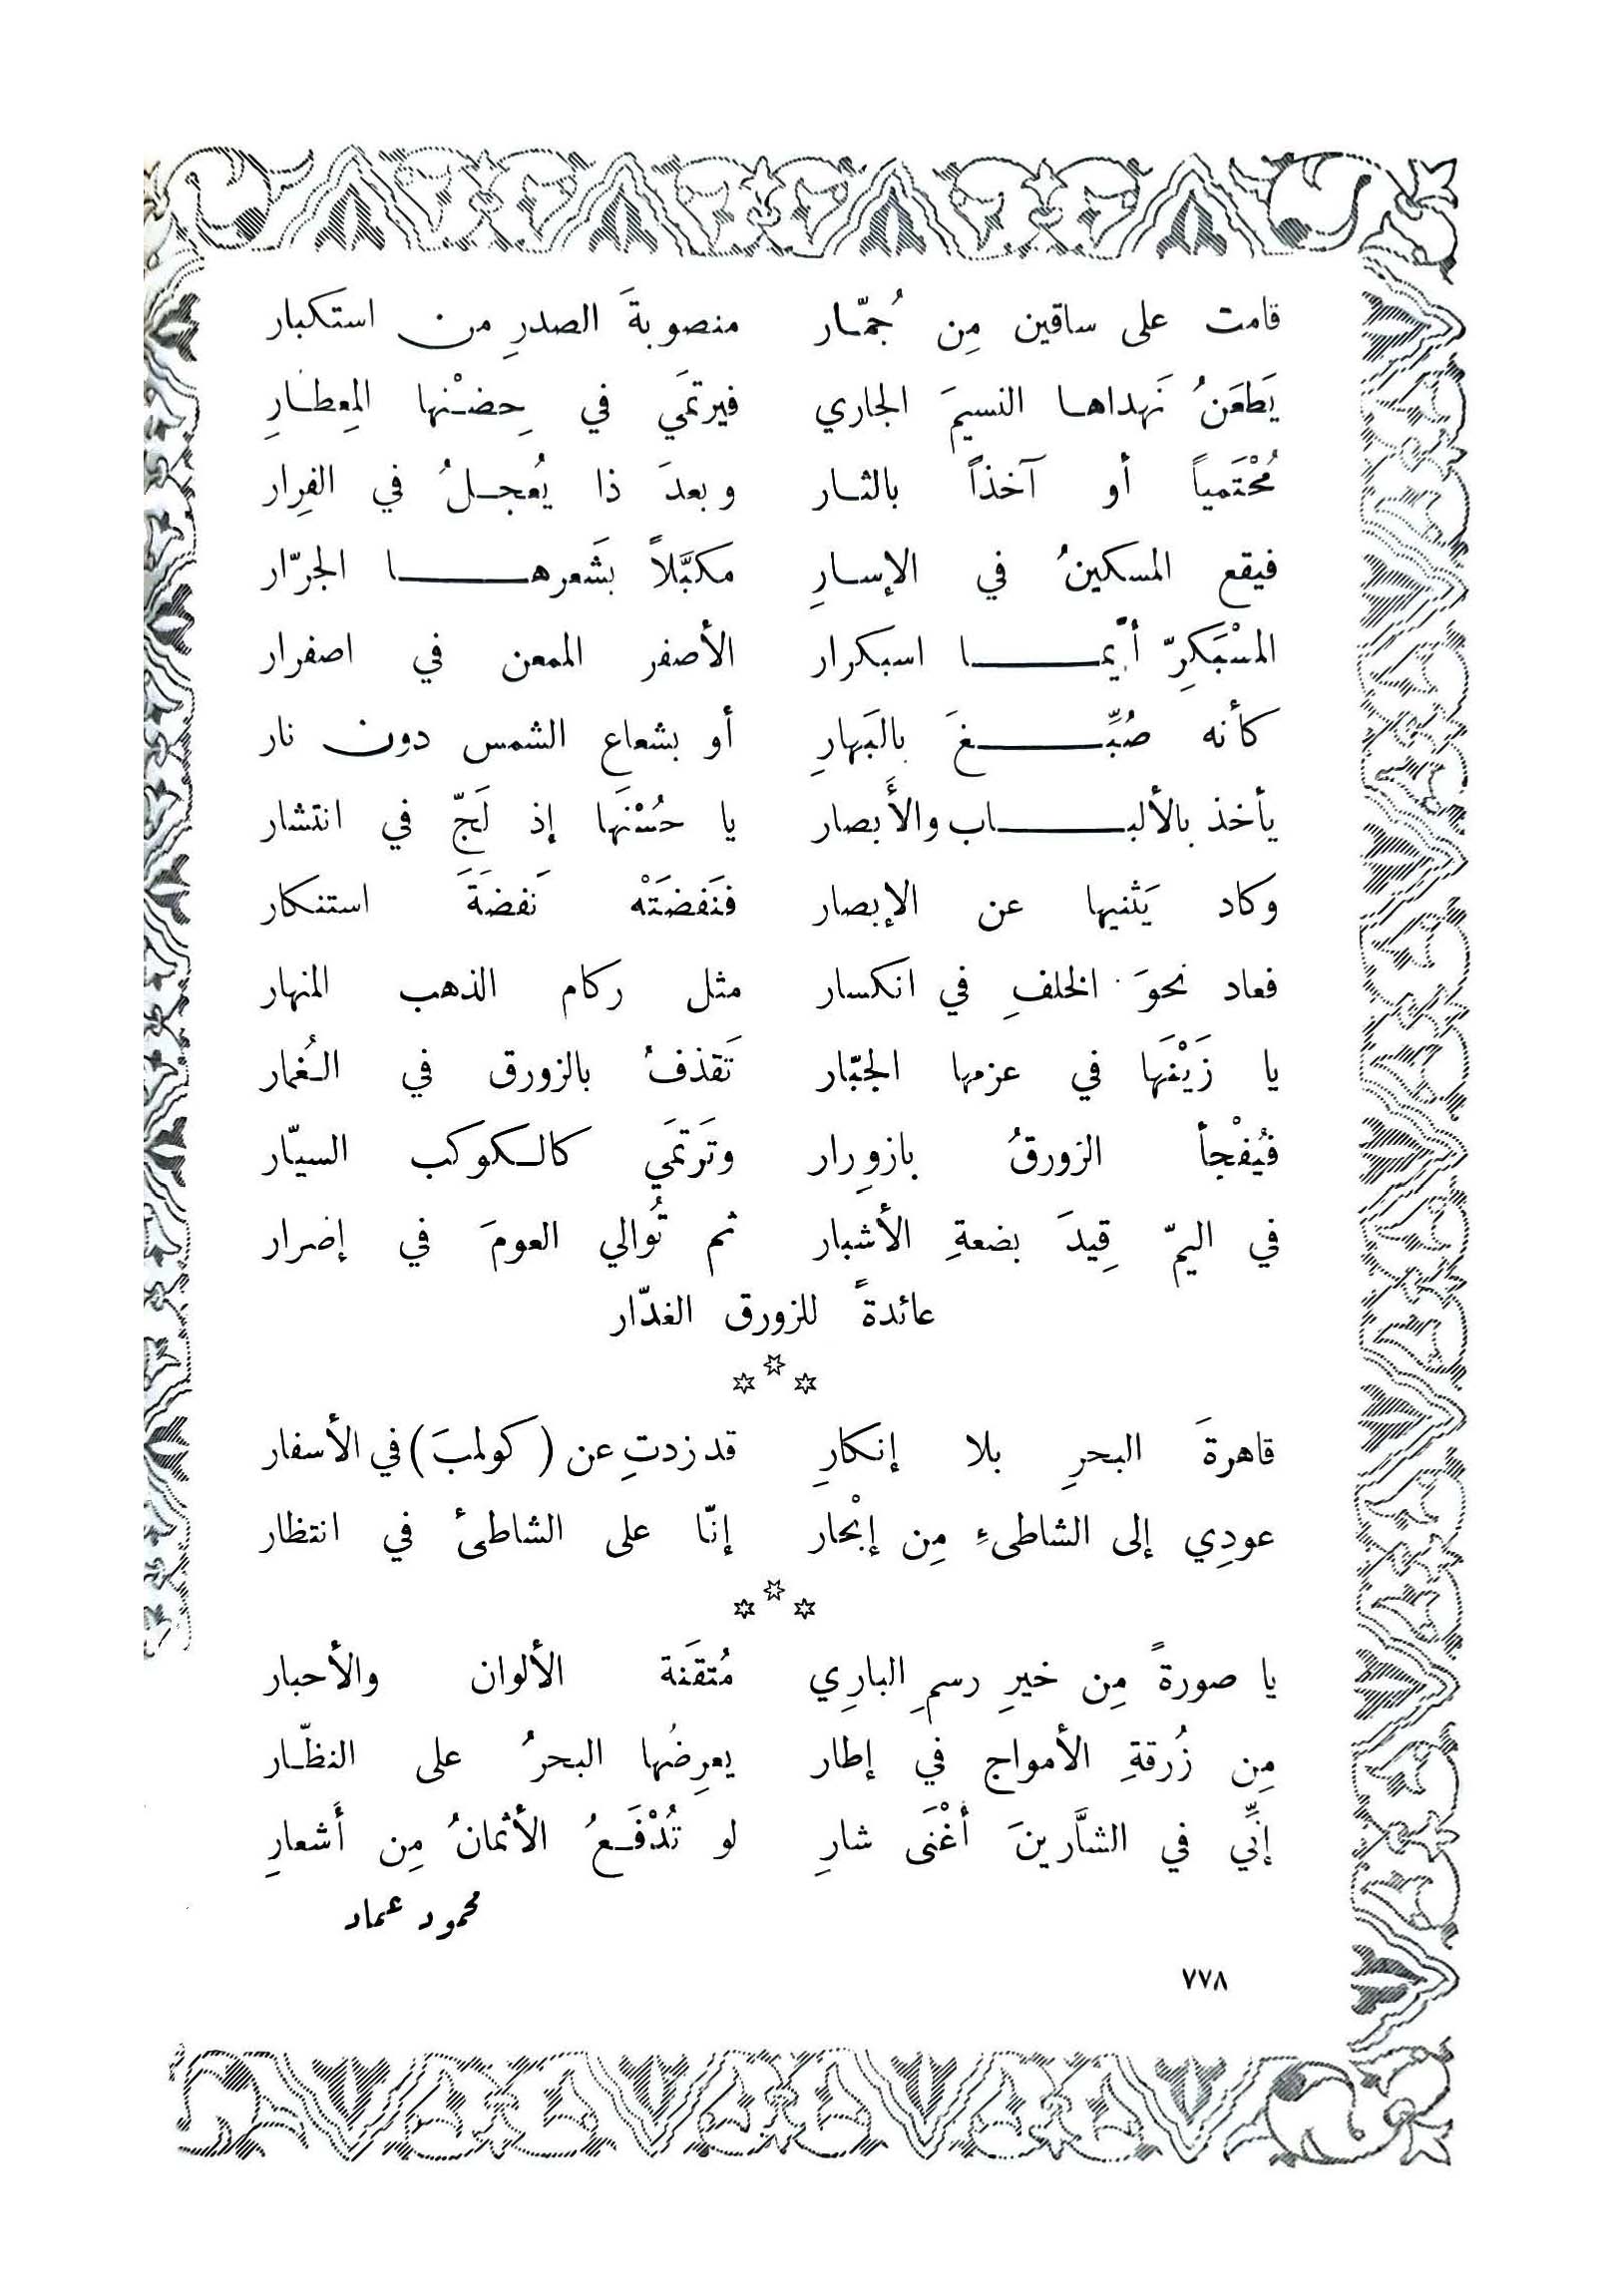 قامت على ساقين مِن جُمّار منصوبةَ الصدرِ من استكبار
يَطعَنُ نَهداها النسيمَ الجاري فيرتمَي في حِضْنها المِعطارِ
مُحْتَمياً أو آخذاً بالثار وبعدَ ذا يُعجلُ في الفِرار
فيقع المسكينُ في الإسارِ مكبَّلاً بشَعرها الجرّار
المسْبَكِرّ أيّما اسبكرار الأصفر الممعن في اصفرار
كأنه صُبِّغَ بالبَهارِ أو بشعاع الشمس دون نار
يأخذ بالألباب والأَبصار يا حُسْنَها إذ لَجّ في انتشار
وكاد يَثنيها عن الإبصار فنَفضَتْه نَفضَةَ استنكار
فعاد نحوَ الخلفِ في انكسار مثل ركام الذهب المنهار
يا زَيْنَها في عزمها الجبّار تَقذفُ بالزورق في الغُمار
فيُفْجأ الزورقُ بازوِرار وتَرتمَي كالكوكب السيّار
في اليمّ قِيدَ بضعةِ الأشبار ثم تُوالي العومَ في إضرار
عائدةً للزورق الغدّار
***
قاهرةَ البحرِ بلا إنكارِ قد زدتِ عن (كولمبَ) في الأسفار
عودِي إلى الشاطىءِ مِن إبْحار إنّا على الشاطئ في انتظار
***
يا صورةً مِن خيرِ رسمِ البارِي مُتقَنة الألوان والأحبار
مِن زُرقةِ الأمواج في إطار يعرِضُها البحرُ على النظّار
إنِّي في الشاَّرينَ أغْنَى شارِ لو تُدْفَعُ الأثمانُ مِن أَشعارِ
محمود عماد
٧٧٨